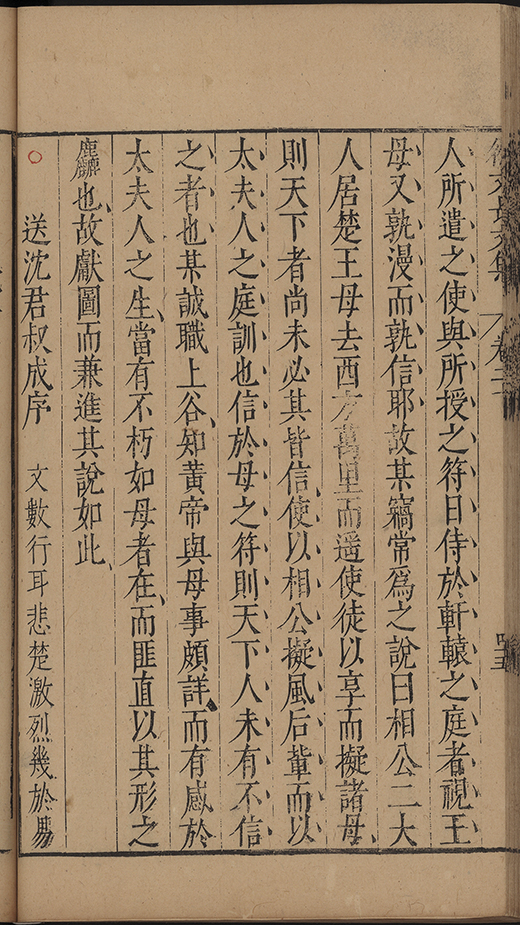 徐文長文集 卷二十
人所遣之使與所授之符日侍於軒轅之庭者視王
母又孰漫而孰信耶故某竊常爲之說曰相公二大
人居楚王母去西方萬里而遥使徒以享而擬諸母、
則天下者尚未必其皆信、使以相公擬風后軰而以
太夫人之庭訓也信於母之符則天下人未有不信
之者也某誠職上谷、知黄帝與母事頗詳、而有感於
太夫人之生、當有不朽如母者在、而匪直以其形之
也、故獻圖而兼進其說如此、
○ 送沈君叔成序 文數行耳悲楚激烈幾於易